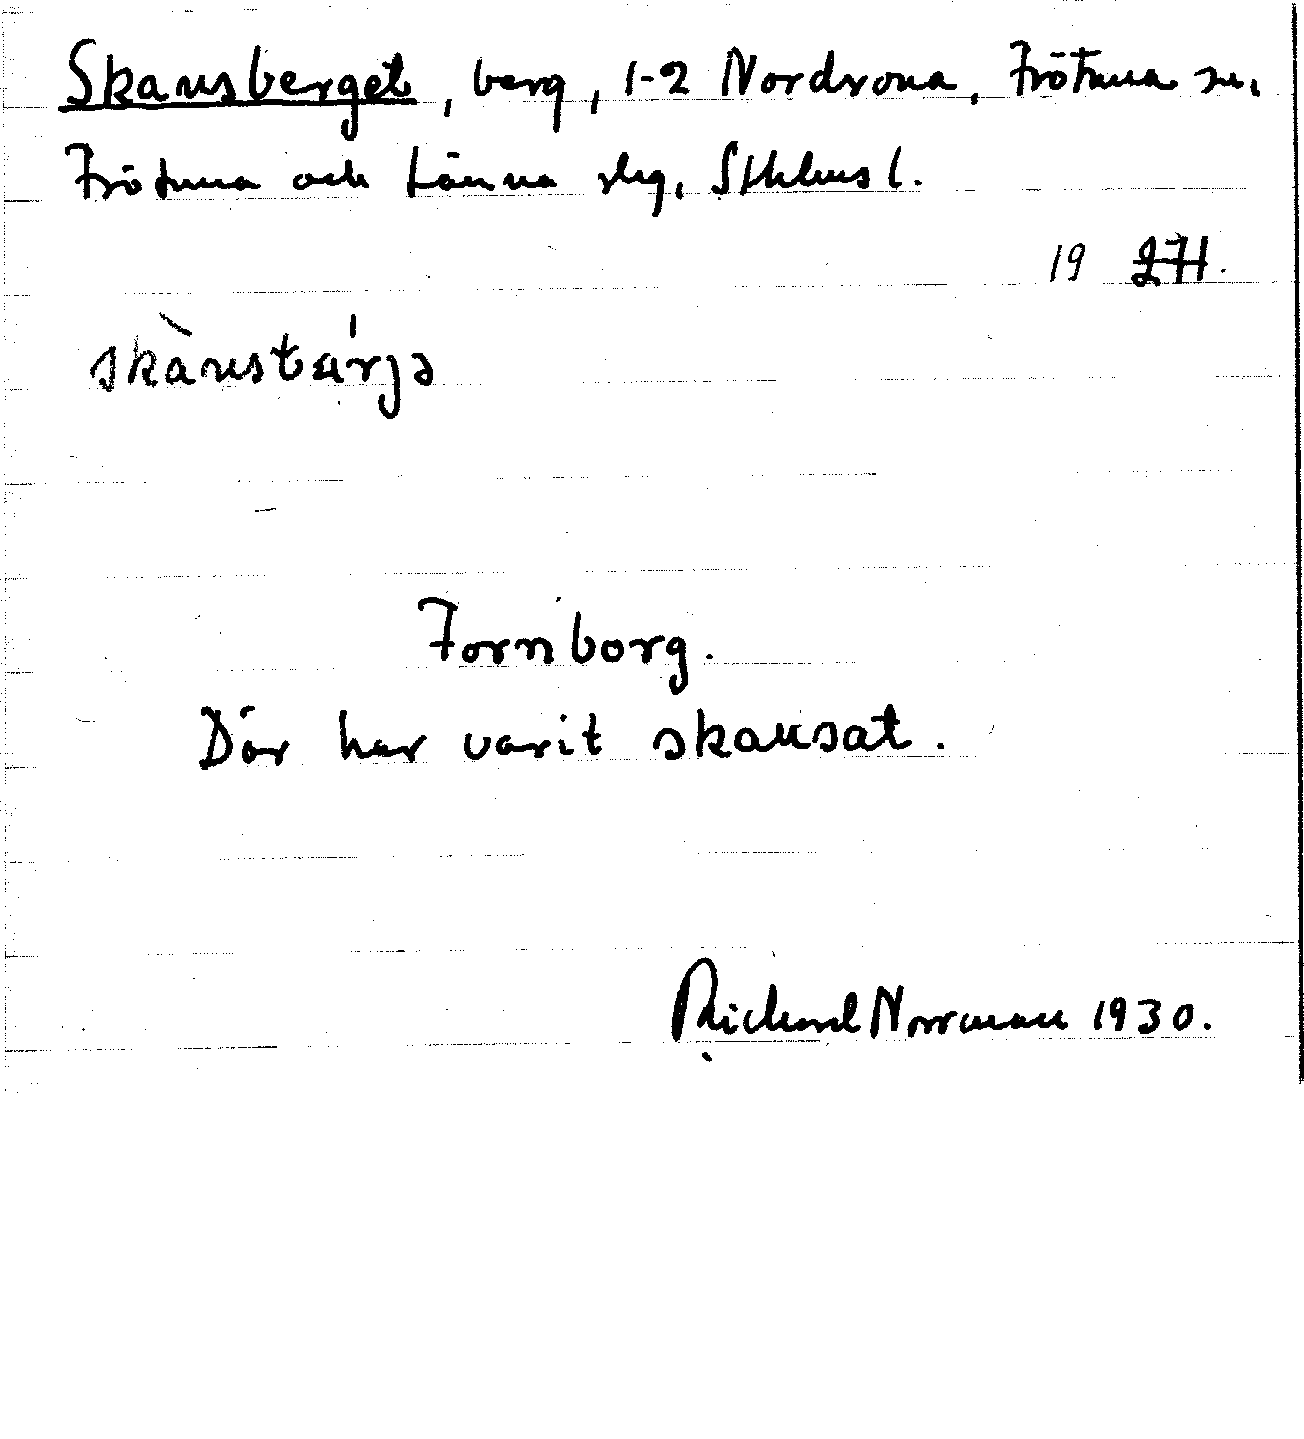 Skansberget, berg, 1-2 Nordrona, Frötuna sn,
Frötuna och Länna slg, Sthlms l.
19 271.
Fornborg.
Där har varit skansat.
Richard Norrman 1930.